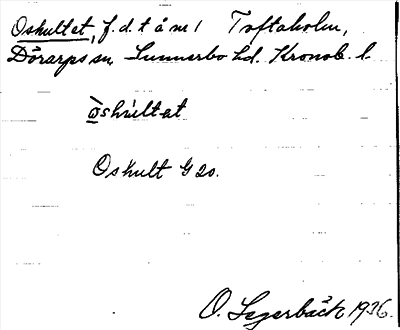 Oskultet, f.d. t å m 1 Toftaholm,
Dörarps sn, Sunnerbo hd. Kronob. l.
òskultət
Oskult G 20.
O. Segerbäck 1936.